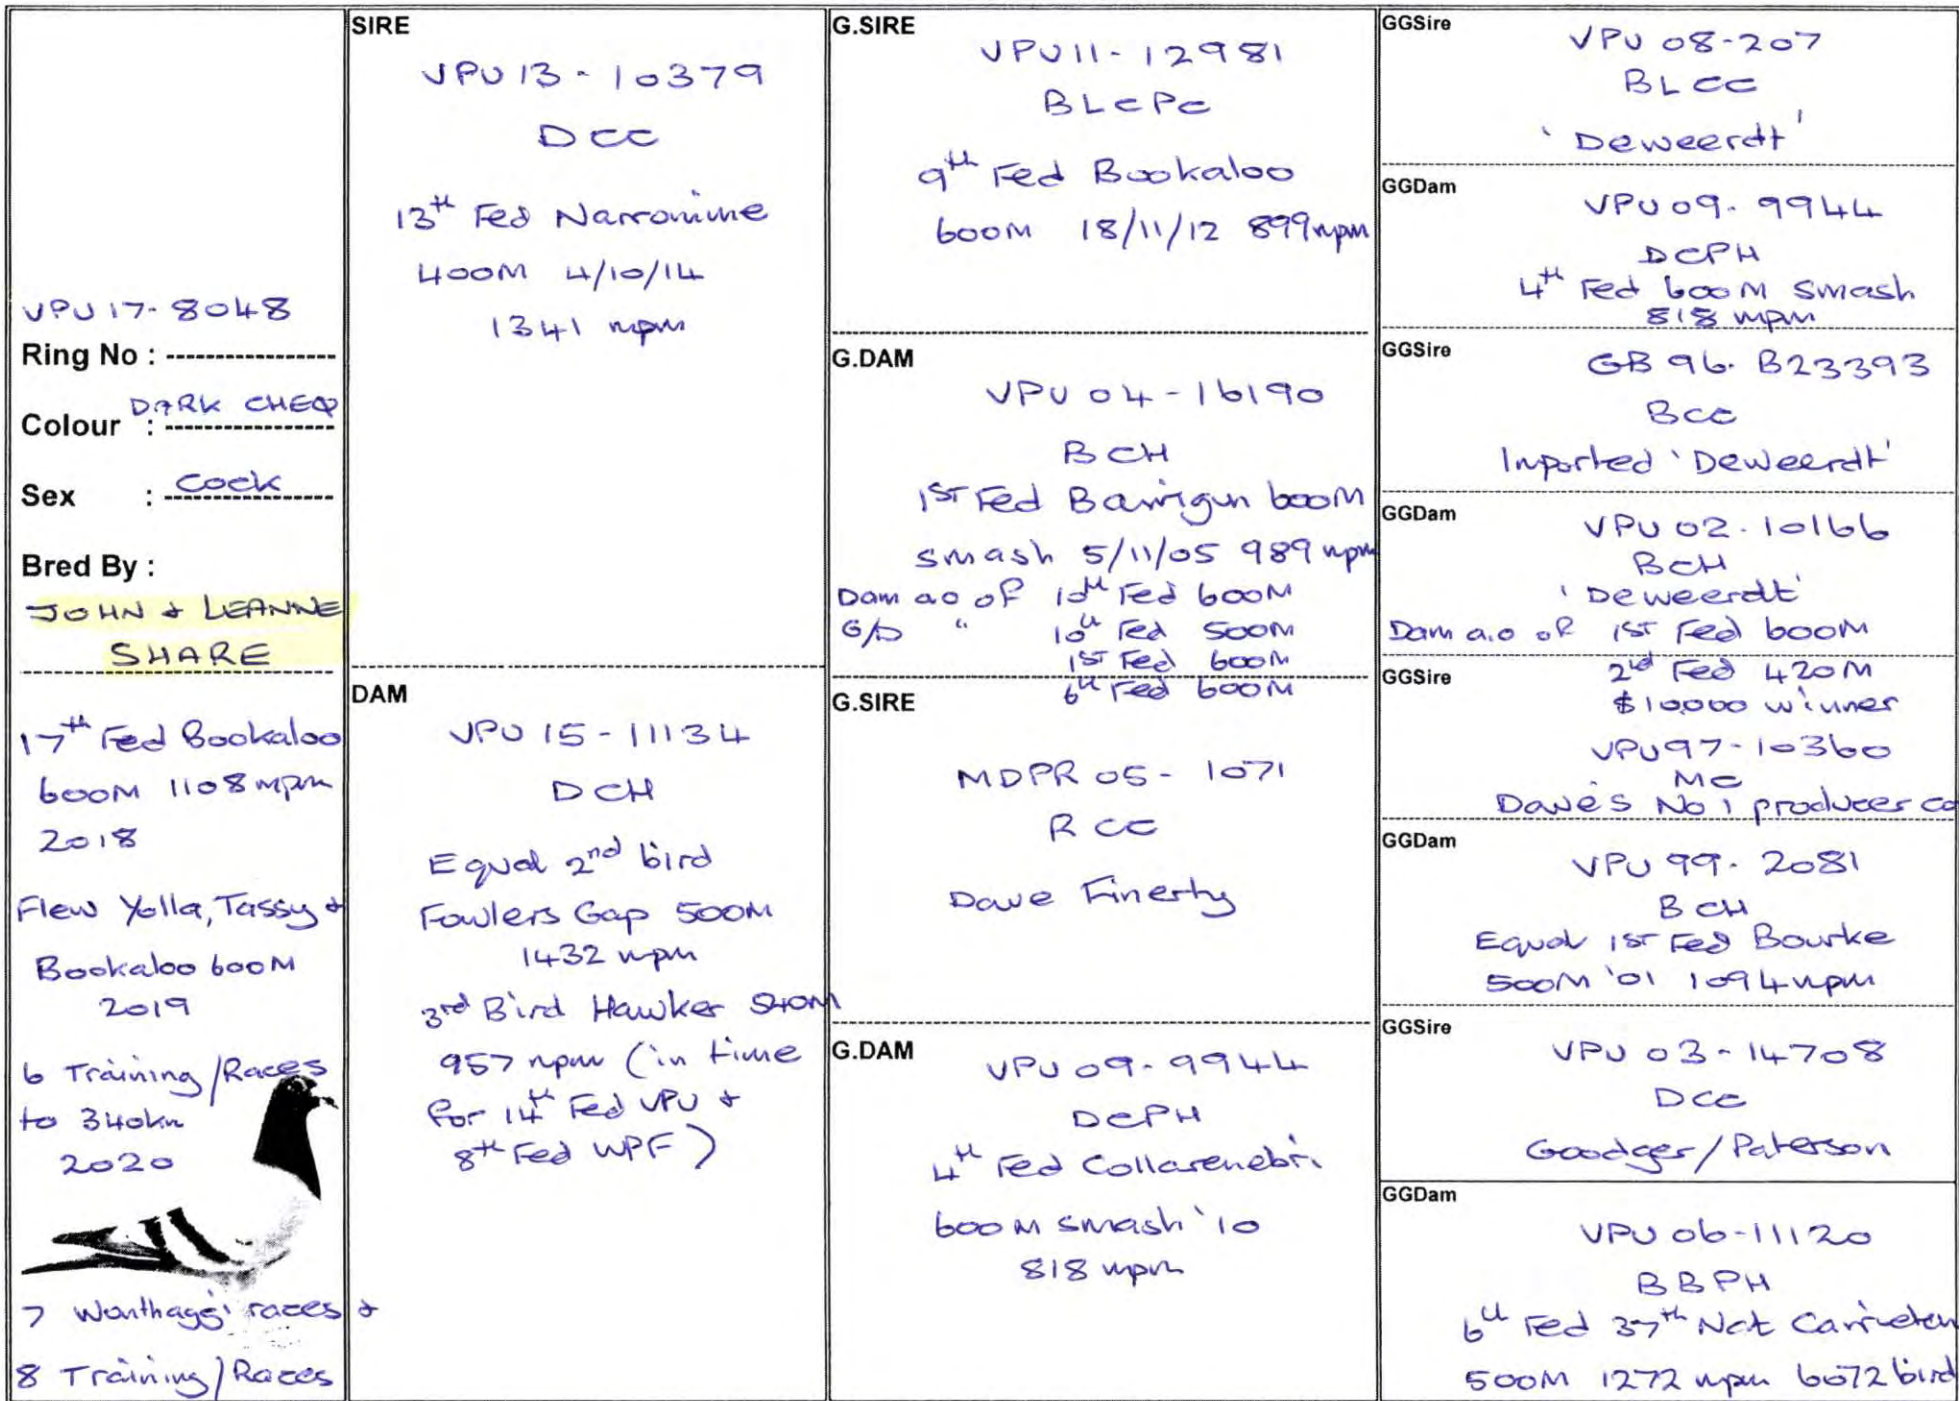 VPU 17-8048
Ring No :
DARK CHEQ
Colour :
Sex : Cock
Bred By :
JOHN & LEANNE
SHARE
17th Fed Bookaloo
600M 1108 mpm
2018
Flew Yolla, Tassy &
Bookaloo 600M
2019
6 Training/Races
to 340km
2020
7 Wonthaggi races &
8 Training/Races
SIRE
VPU 13-10379
DCC
13th Fed Narromine
400M 4/10/14
1341 mpm
DAM
VPU 15-11134
DCH
Equal 2nd bird
Fowlers Gap 500M
1432 mpm
3rd Bird Hawker 540M
957 mpm (in time
for 14th Fed VPU &
8th Fed WPF)
G.SIRE
VPU 11-12981
BLCPC
9th Fed Bookaloo
600M 18/11/12 899 mpm
G.DAM
VPU 04-16190
BCH
1st Fed Barrigun 600M
smash 5/11/05 989 mpm
Dam a o of 10th Fed 600M
G/D " 10th Fed 500M
1st Fed 600M
6th Fed 600M
G.SIRE
MDPR 05-1071
RCC
Dave Finerty
G.DAM
VPU 09-9944
DCPH
4th Fed Collarenebri
600M smash '10
818 mpm
GGSire
VPU 08-207
BLCC
'Deweerdt'
GGDam
VPU 09-9944
DCPH
4th Fed 600M smash
818 mpm
GGSire
GB 96. B23393
BCC
Imported 'Deweerdt'
GGDam
VPU 02-10166
BCH
'Deweerdt'
Dam a.o of 1st Fed 600M
2nd Fed 420M
$10,000 winner
GGSire
VPU 97-10360
MC
Dave's No 1 producer co
GGDam
VPU 99-2081
BCH
Equal 1st Fed Bourke
500M '01 1094 mpm
GGSire
VPU 03-14708
DCC
Goodger/Paterson
GGDam
VPU 06-11120
BBPH
6th Fed 37th Nat Carrieton
500M 1272 mpm 6072 bird